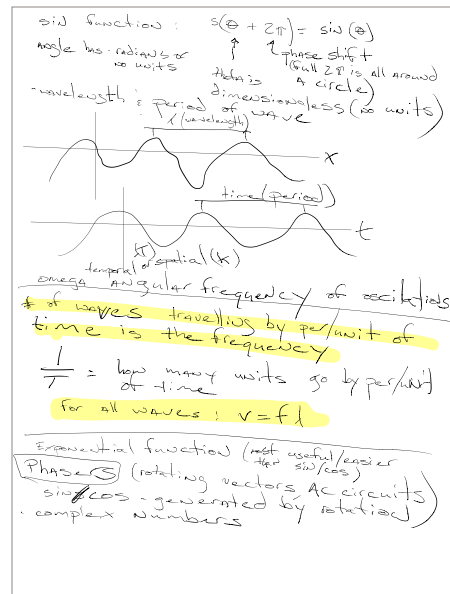 sin function : s(θ + 2π) = sin(θ)
angle has - radians or no units
theta is dimensionless (no units)
phase shift (full 2π is all around a circle)
- wavelength & period of wave
λ (wavelength)
x
time (period)
t
(T)
temporal or spatial (K)
omega angular frequency of oscillations
# of waves travelling by per/unit of
time is the frequency
1/T = how many units go by per/unit
of time
for all waves : v = fλ
Exponential function (most useful/easier
than sin/cos)
Phasers (rotating vectors, AC circuits
sin & cos - generated by rotation)
· complex numbers